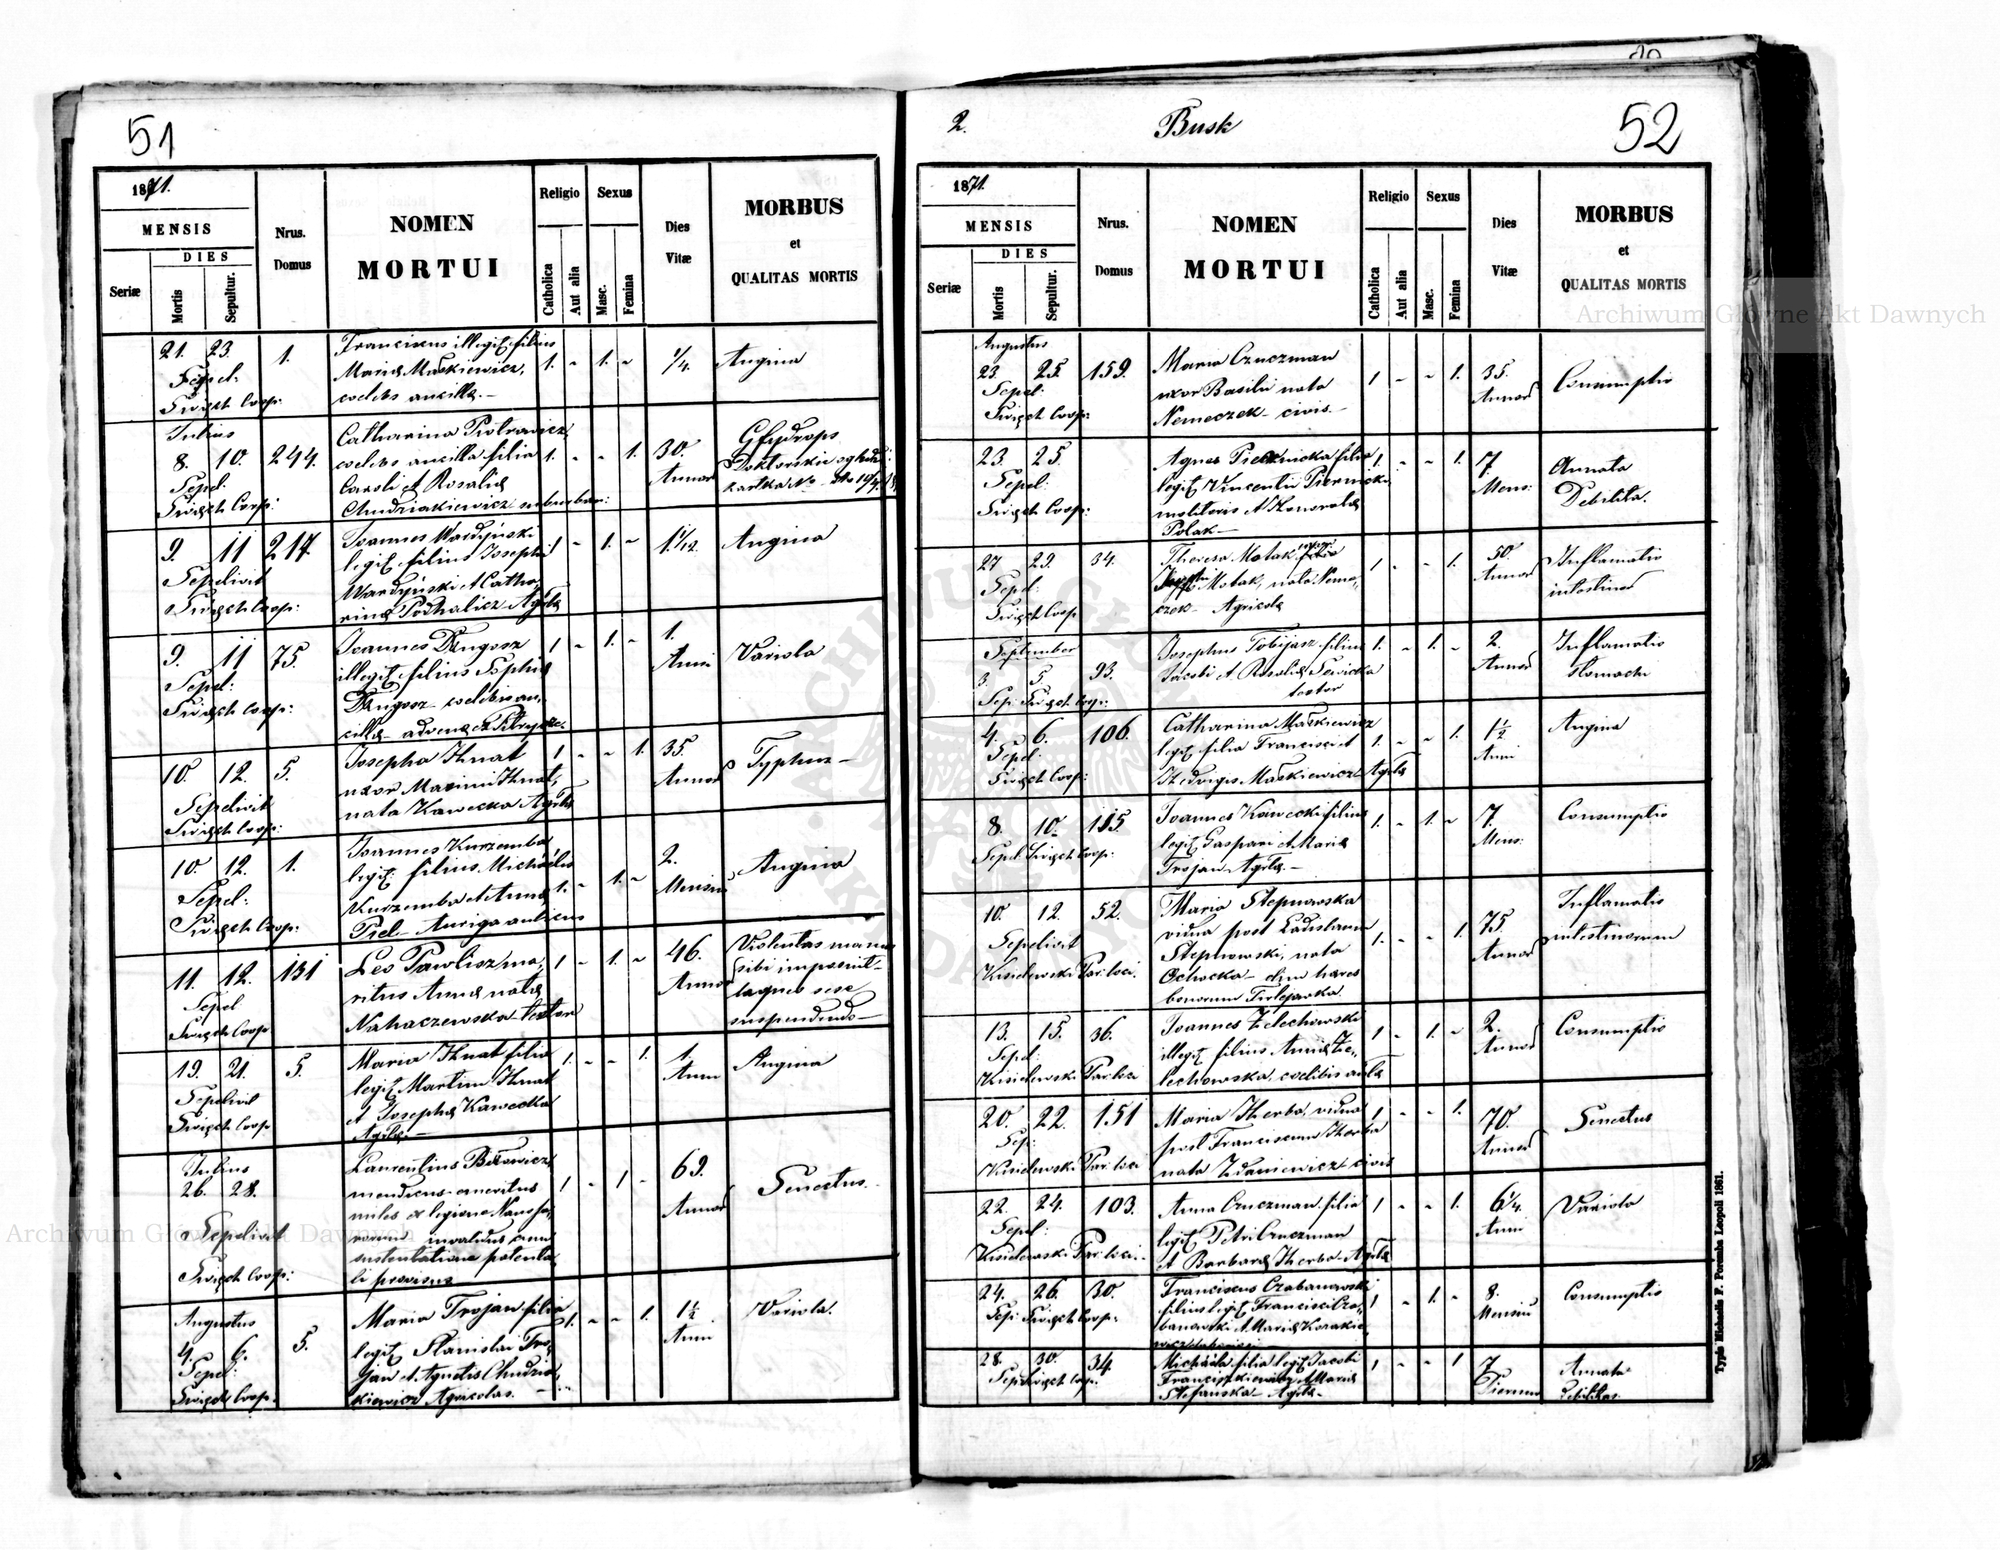 51
1871.
MENSIS
DIES
Seriæ
Mortis
Sepultur.
Nrus.
Domus
NOMEN
MORTUI
Religio
Catholica
Aut alia
Sexus
Masc.
Femina
Dies
Vitæ
MORBUS
et
QUALITAS MORTIS
21. 23. 1.
Sepel:
Święch Coop:
Franciscus illegit filius
Mariæ Maśkiewicz,
coelebs ancillæ.—
1. - 1. - 1/4. Angina
Julius
8. 10. 244.
Sepel:
Święch Coop:
Catharina Piotrowicz
coelebs ancilla filia
Caroli et Rosaliæ
Chudziakiewicz suburban:
1. - - 1. 30.
Annor
9. 11 217
Sepelivit
Święch Coop:
Joannes Wardyński
legit filius Josephi
Wardyński et Catha-
rinæ Podhalicz Agrlæ
1 - 1. - 1 1/12. Angina
9. 11 75.
Sepel:
Święch Coop:
Joannes Długosz
illegit filius Sophiæ
Długosz coelibis an-
cillæ
1 - 1. - 1.
Anni
Variola
10. 12. 5.
Sepelivit
Święch Coop:
Josepha Hnat
uxor Maximi Hnat,
nata Kawecka Agrlæ
1. - - 1. 35.
Annor
Typhus —
10. 12. 1.
Sepel:
Święch Coop:
Joannes Kurzemba
legit filius Michaelis
Kurzemba et Annæ
Piel — Auriga aulicus
1. - 1. - 2.
Mensium
Angina
11. 12. 131
Sepel
Święch Coop
Leo Pawlisz ma-
ritus Annæ natæ
Nahaczewska textor
1 - 1. - 46.
Annor
Violentas manus
sibi imposuit —
laqueo sese
suspendendo —
19. 21. 5.
Sepelivit
Święch Coop
Maria Hnat filia
legit Martini Hnat
et Josephæ Kawecka
Agrlæ.—
1. - - 1. 1.
Anni
Angina
Julius
26. 28.
Sepelivit
Święch Coop:
Laurentius
mendicus emeritus
miles ex legione
invalidus cum
sustentatione patenta-
li provisus
1 - 1 - 69.
Annor
Senectus.
Augustus
4. 6. 5.
Sepel:
Święch Coop.
Maria Trojan filia
legit Stanislai Tro-
jan et Agnetis Chudzia-
kiewicz Agricolæ.
1. - - 1. 1½
Anni
Variola.
2. Busk 52
1871.
MENSIS
DIES
Seriæ
Mortis
Sepultur.
Nrus.
Domus
NOMEN
MORTUI
Religio
Catholica
Aut alia
Sexus
Masc.
Femina
Dies
Vitæ
MORBUS
et
QUALITAS MORTIS
Augustus
23. 25. 159.
Sepel:
Święch Coop:
Maria Czuczman
uxor Basilii nata
Nemeczek — civis.—
1 - - 1. 35.
Annor
Consumptio
23. 25.
Sepel:
Święch Coop:
Agnes Piernicka filia
legit Vincentii Piernicki
molitoris et Honoratæ
Polak —
1. - - 1. 7.
Mens:
Annata
Debilita.
27 29. 34.
Sepel:
Święch Coop
Theresa Motak uxor
Motak, nata Neme-
czek — Agricolæ
1 - - 1. 50.
Annor
Inflamatio
intestinor
September
3. 5 93.
Sep: Święch Coop:
Josephus Tobijasz filius
Jacobi et Rosaliæ
textor
1. - 1. - 2.
Annor
Inflamatio
stomachi
4. 6. 106.
Sepel:
Święch Coop:
Catharina Maśkiewicz
legit filia Francisci et
Hedvigis Maśkiewicz Agrlæ
1. - - 1. 1½
Anni
Angina
8. 10. 115.
Sepel: Święch Coop:
Joannes Kawecki filius
legit Gaspari et Mariæ
Trojan Agrlæ.—
1. - 1. - 7.
Mens:
Consumptio
10. 12. 52.
Sepelivit
Kisielewski Par: loci.
Maria Stepnowska
vidua post Ladislaum
Stepnowski, nata
Ochocka — dim hæres
bonorum
1. - - 1. 75.
Annor
Inflamatio
intestinorum
13. 15. 36.
Sepel:
Kisielewski Par: loci
Joannes Zelechowski
illegit filius Annæ Ze-
lechowska, coelibis
1 - 1. - 2.
Annor
Consumptio
20. 22. 151
Sep:
Kisielewski Par: loci
Maria Herba, vidua
post Franciscum Herba
nata Zdaniewicz civis
1 - - 1. 70.
Annor
Senectus
22. 24. 103.
Sepel:
Kisielewski Par: loci.
Anna Czuczman filia
legit Petri Czuczman
et Barbaræ Herba — Agrlæ
1 - - 1. 6¼.
Anni
Variola
24. 26. 30.
Sep: Święch Coop:
Franciscus Czabanowski
filius legit Francisci Cza-
banowski et Mariæ
1 - 1. - 8.
Mensium
Consumptio
28. 30. 34
Sep: Święch Coop:
filia legit Jacobi
Franciszkiewicz et Mariæ
Stefańska — Agrlæ —
1 - - 1 7
Dierum
Annata
debilitas
Typis Michaelis F. Poremba Leopoli 1861.
Archiwum Główne Akt Dawnych
Archiwum Główne Akt Dawnych
ARCHIWUM GŁÓWNE AKT DAWNYCH